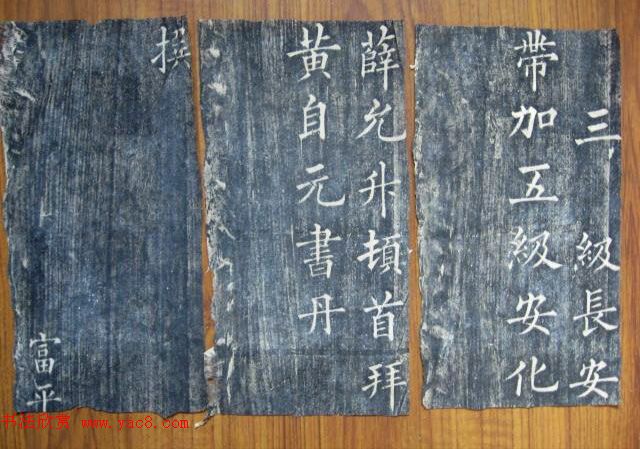 三　級長安
帶加五級安化
薛允升頓首拜
黄自元書丹
撰
富平
书法欣赏 www.yac8.com